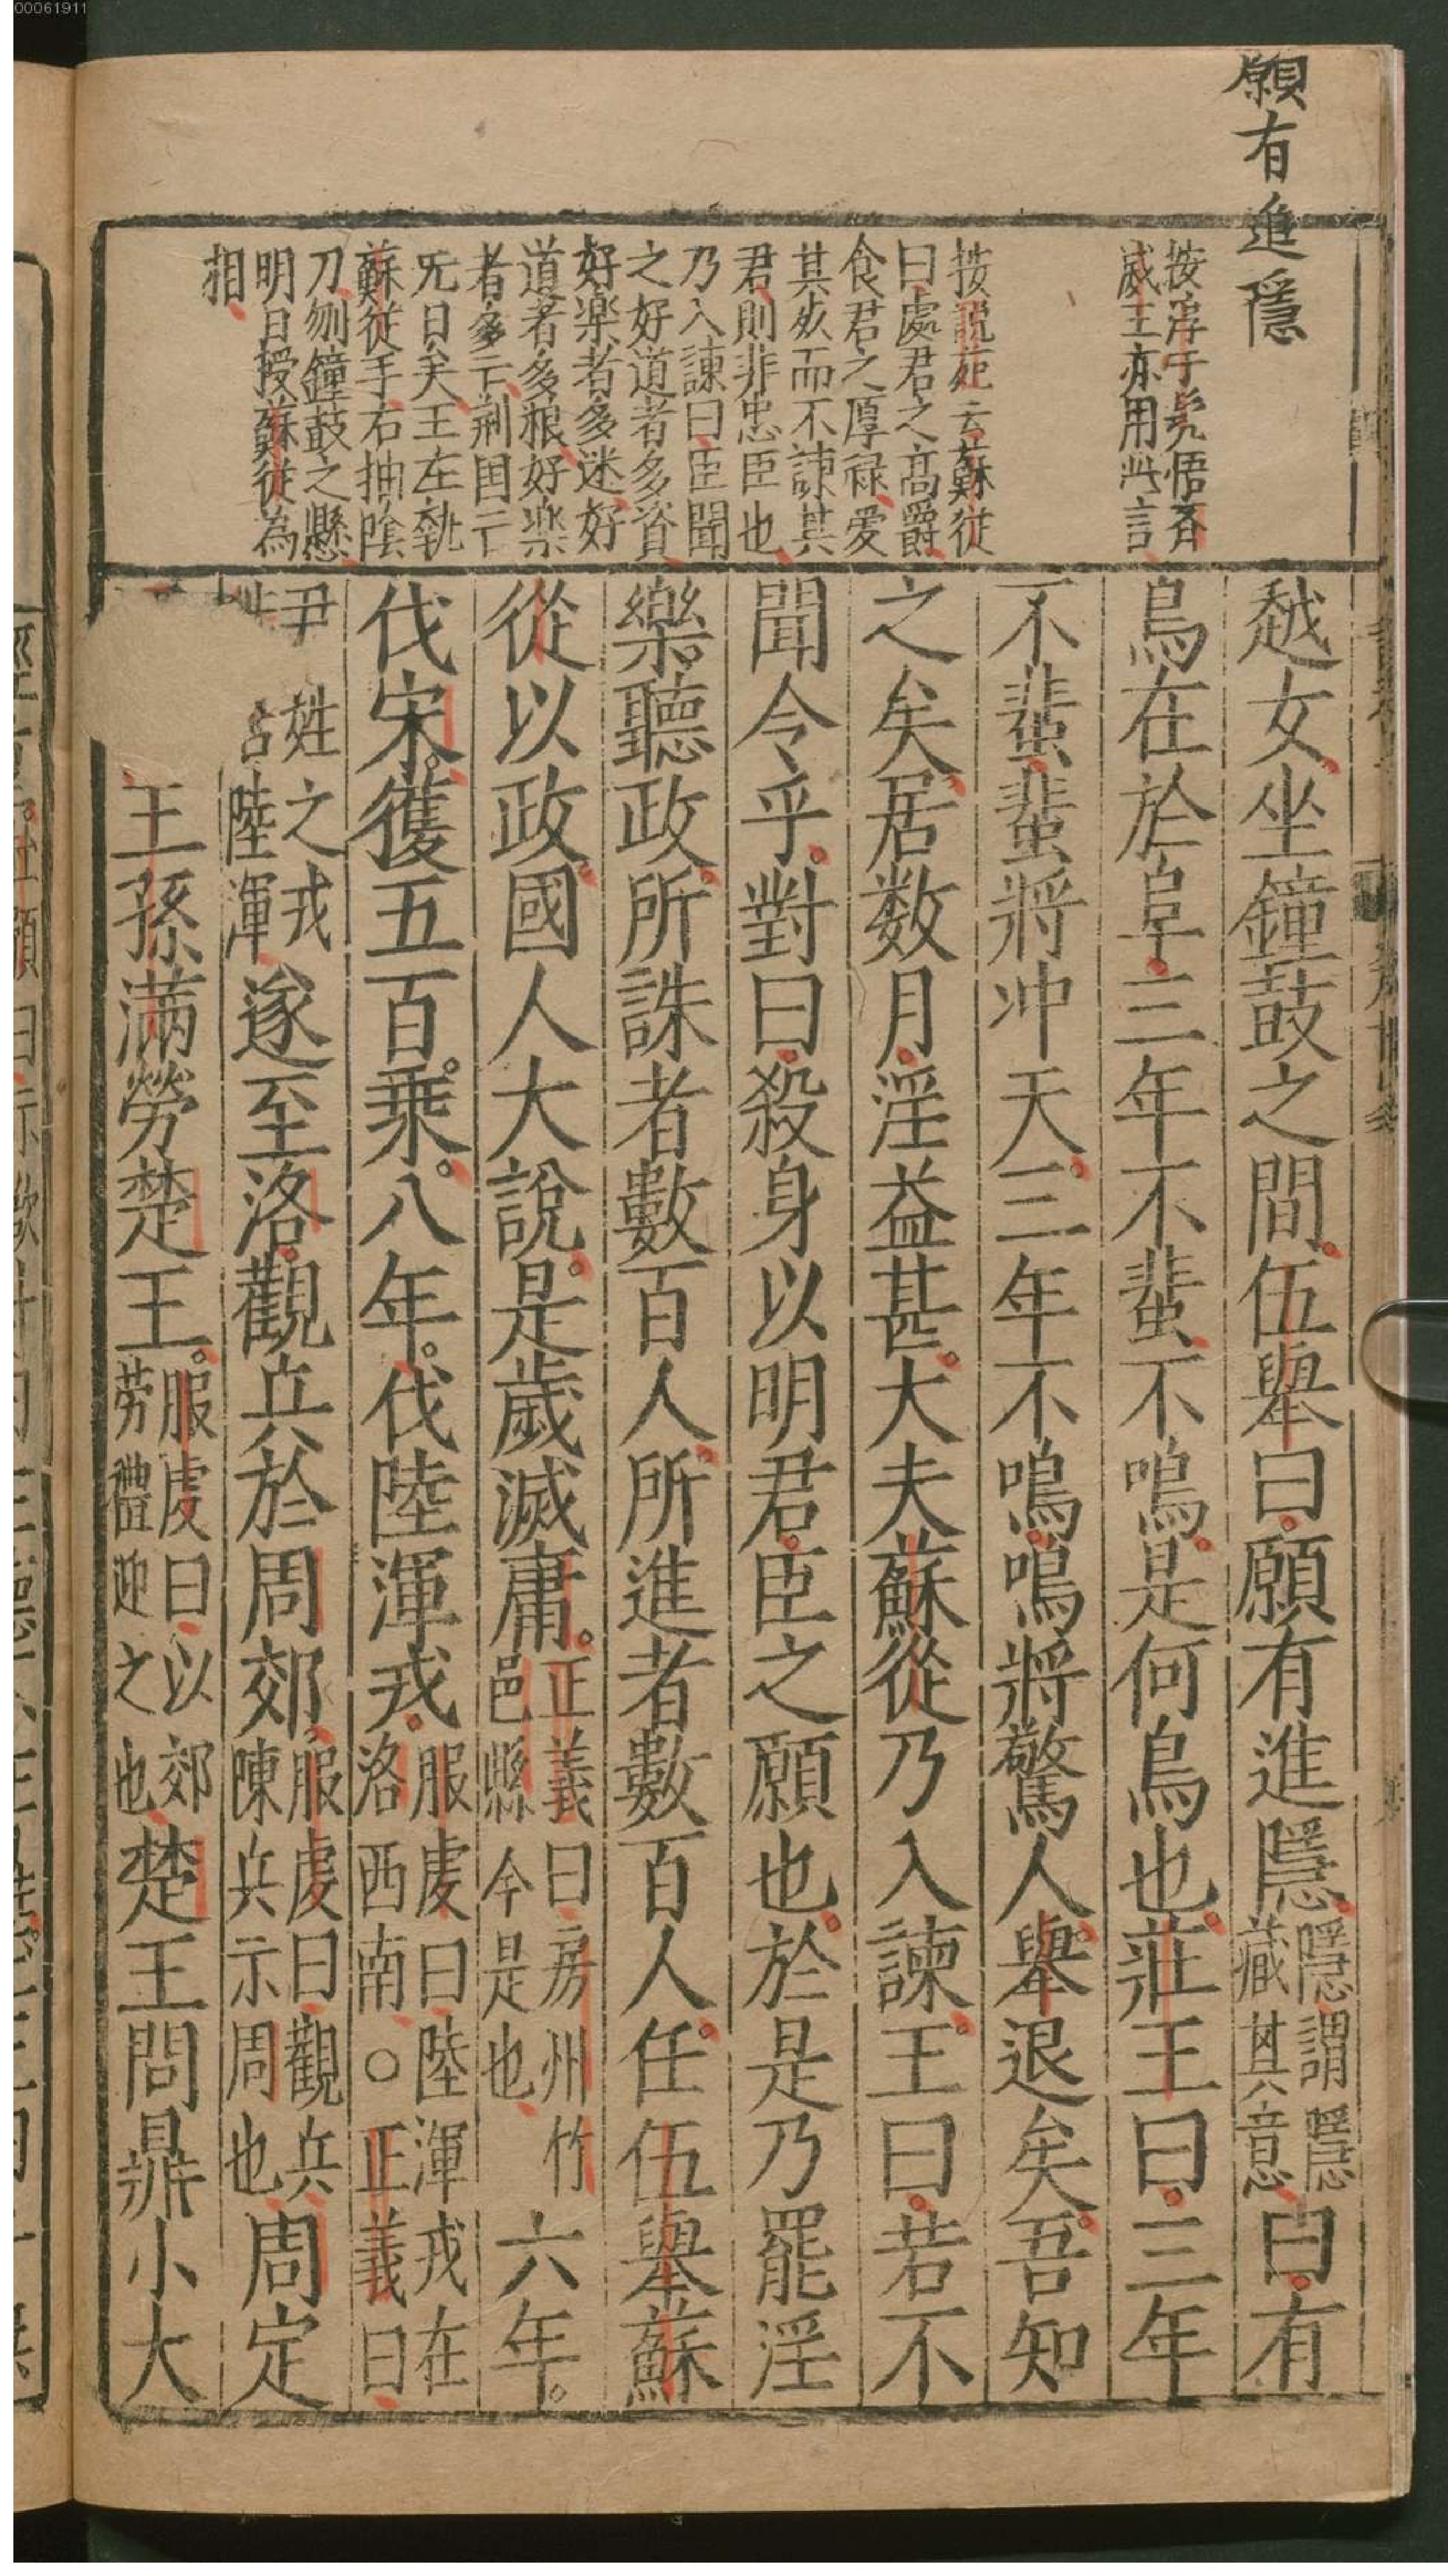 00061911
願有進隱
按淳于髡悟斉
威王亦用此言
按説苑云蘇従
曰處君之高爵
食君之厚禄愛
其死而不諌其
君則非忠臣也
乃入諌曰臣聞
之好道者多資
好楽者多迷好
道者多粮好楽
者多亡荊国亡
旡日矣王左執
蘇従手右抽陰
刀刎鐘鼓之懸
明日授蘇従為
相
越女坐鐘鼓之間伍舉曰願有進隱隱謂隱藏其意曰有
鳥在於阜三年不蜚不鳴是何鳥也莊王曰三年
不蜚蜚將冲天三年不鳴鳴將驚人舉退矣吾知
之矣居数月淫益甚大夫蘇從乃入諫王曰若不
聞令乎對曰殺身以明君臣之願也於是乃罷淫
樂聽政所誅者數百人所進者數百人任伍舉蘇
從以政國人大說是歲滅庸正義曰房州竹邑縣今是也六年
伐宋獲五百乘八年伐陸渾戎服虔曰陸渾戎在洛西南○正義曰
尹姓之戎陸渾遂至洛觀兵於周郊服虔曰觀兵陳兵示周也周定
王孫滿勞楚王服虔曰以郊勞禮迎之也楚王問鼎小大